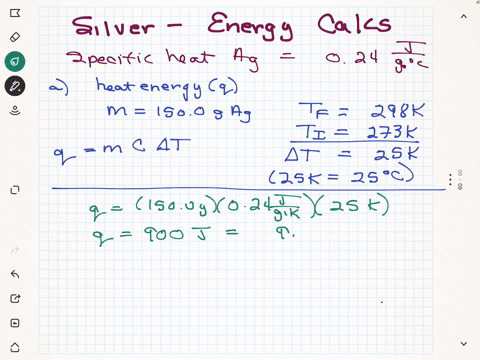 Silver - Energy Calks
Specific heat Ag = 0.24 J/g°C
a) heat energy (q)
m = 150.0 g Ag
q = m C ΔT
T_F = 298K
T_I = 273K
ΔT = 25K
(25K = 25°C)
q = (150.0g)(0.24 J/g·K)(25K)
q = 900 J = 9.